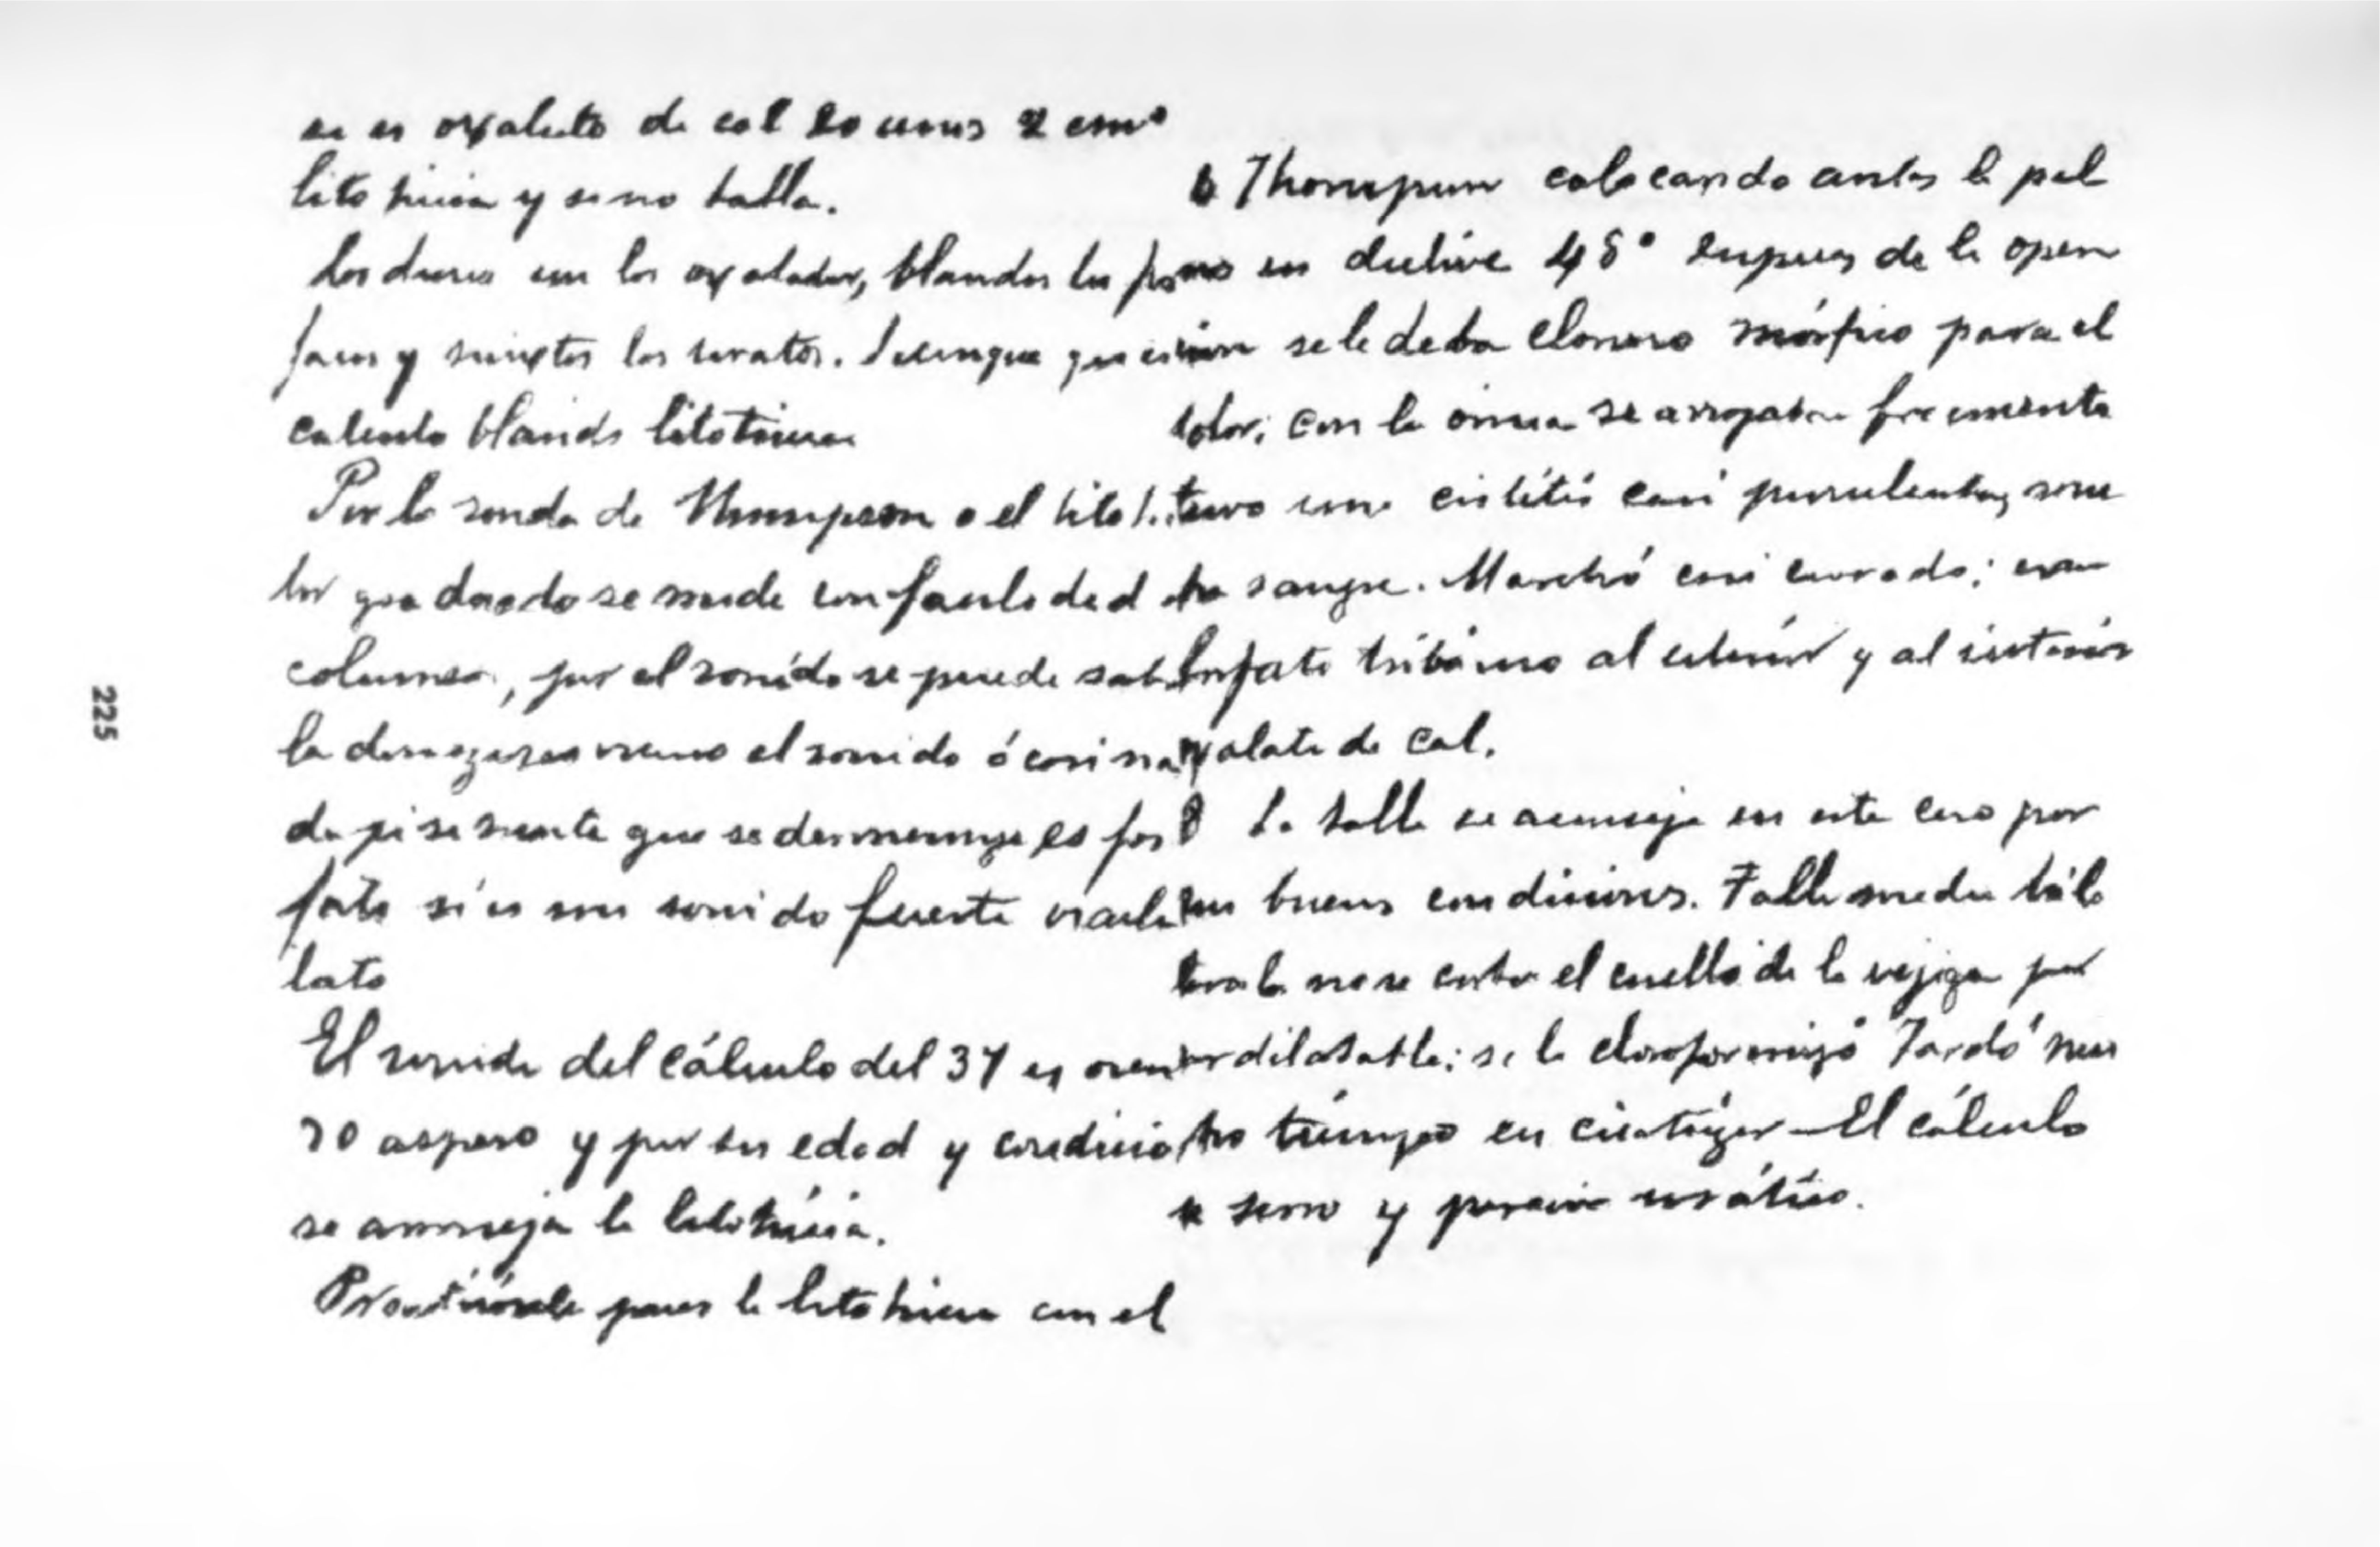 es oxalato de cal unos 2 cms
litotricia y si no talla.
Los duros son los oxalatos, blandos los fos
fatos y mixtos los uratos. Siempre que
calculo blando litotricia
Por la sonda de Thompson o el litotri
tor graduado se mide con facilidad
columna, por el sonido se puede sab
la dureza el sonido ó casi na
da si se siente que se desmenuza es fos
fato si es un sonido fuerte
lato
El sonido del cálculo del 37 es
ro aspero y por su edad y condicio
se aconseja la litotricia.
Practicósele pues la litotricia con el
Thompson colocando antes la pel
en declive 45° despues de la opera
se le daba cloruro mórfico para el
dolor; con la orina se arrojaban
tuvo una cistitis casi purulenta,
sangre. Marchó casi curado; eran
fosfato tribásico al exterior y al interior
oxalato de cal.
8 La talla se aconseja en este caso por
sus buenas condiciones. Talla medio bila
teral no se corta el cuello de la vejiga por
ser dilatable; se le cloroformizó Tardó mu
cho tiempo en cicatrizar – El cálculo
y parecia urático.
225